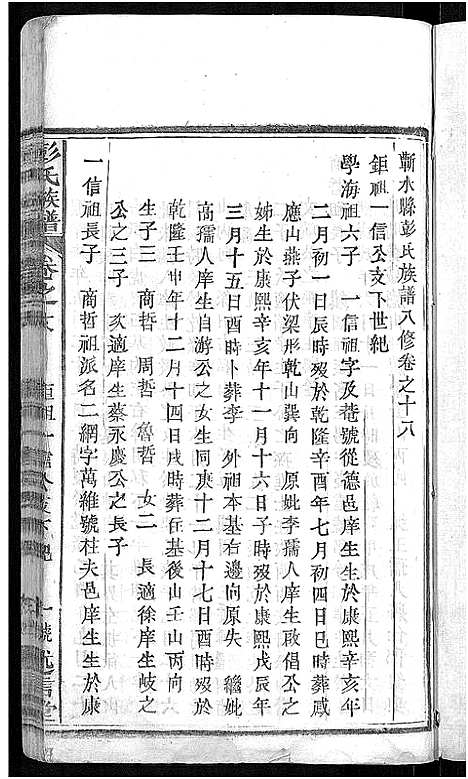 蘄水縣彭氏族譜八修卷之十八
鉅祖一信公支下世紀
學海祖六子 一信祖字及菴號從德邑庠生生於康熙辛亥年
二月初一日辰時歿於乾隆辛酉年七月初四日巳時葬咸
應山燕子伏梁形乾山巽向 原妣李孺人庠生啟倡公之
姊生於康熙辛亥年十一月十六日子時歿於康熙戊辰年
三月十五日酉時卜葬李 外祖本基右邊向原失 繼妣
高孺人庠生自游公之女生同庚十二月十七日酉時歿於
乾隆壬申年十二月十四日戌時葬任基後山壬山丙向
生子三 商哲 周哲 魯哲 女二 長適徐庠生岐之
公之三子 次適庠生蔡永慶公之長子
一信祖長子 商哲祖派名二網字萬維號杜夫邑庠生生於康
彭氏族譜 卷之十八 鉅祖一信公支下紀 一號 述信堂